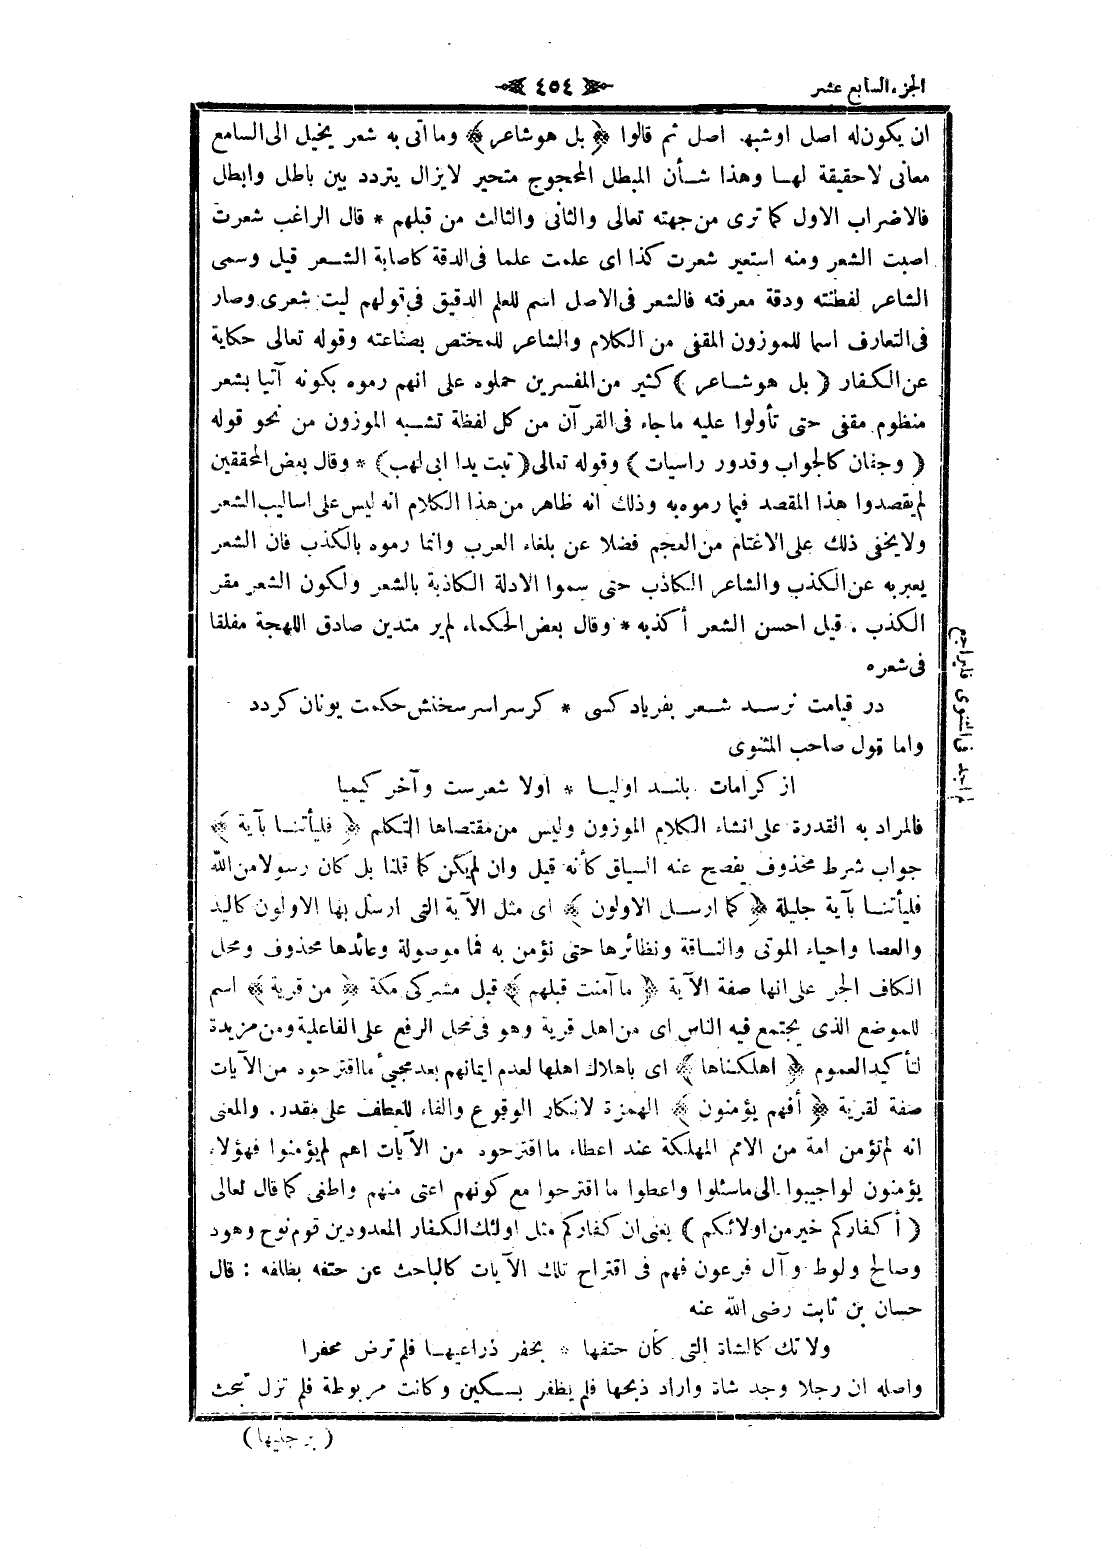 الجزء السابع عشر
٤٥٤
ان يكون له اصل اوشبهـ اصل ثم قالوا ﴿ بل هوشاعر ﴾ وما اتى به شعر يخيل الى السامع
معانى لاحقيقة لهـا وهذا شـأن المبطل المحجوج متحير لايزال يتردد بين باطل وابطل
فالاضراب الاول كما ترى من جهته تعالى والثانى والثالث من قبلهم * قال الراغب شعرت
اصبت الشعر ومنه استعير شعرت كذا اى علمت علما فى الدقة كاصابة الشـعر قيل وسمى
الشاعر لفطنته ودقة معرفته فالشعر فى الاصل اسم للعلم الدقيق فى قولهم ليت شعرى وصار
فى التعارف اسما للموزون المقفى من الكلام والشاعر للمختص بصناعته وقوله تعالى حكاية
عن الكفار ( بل هوشـاعر ) كثير من المفسرين حملوه على انهم رموه بكونه آتيا بشعر
منظوم مقفى حتى تأولوا عليه ماجاء فى القرآن من كل لفظة تشـبه الموزون من نحو قوله
( وجفان كالجواب وقدور راسيات ) وقوله تعالى ( تبت يدا ابى لهب ) * وقال بعض المحققين
لم يقصدوا هذا المقصد فيما رموه به وذلك انه ظاهر من هذا الكلام انه ليس على اساليب الشعر
ولايخفى ذلك على الاغتام من العجم فضلا عن بلغاء العرب وانما رموه بالكذب فان الشعر
يعبر به عن الكذب والشاعر الكاذب حتى سموا الادلة الكاذبة بالشعر ولكون الشعر مقر
الكذب . قيل احسن الشعر أكذبه * وقال بعض الحكماء لم ير متدين صادق اللهجة مفلقا
فى شعره
در قيامت نرسـد شـعر بفرياد كسى * كرسراسر سخنش حكمت يونان كردد
واما قول صاحب المثنوى
از كرامات بلنـد اوليـا * اولا شعرست وآخر كيميا
فالمراد به القدرة على انشاء الكلام الموزون وليس من مقتضاها التكلم ﴿ فليأتنـا بآية ﴾
جواب شرط محذوف يفصح عنه السياق كأنه قيل وان لم يكن كما قلنا بل كان رسولا من الله
فليأتنـا بآية جليلة ﴿ كما ارسـل الاولون ﴾ اى مثل الآية التى ارسل بها الاولون كاليد
والعصا واحياء الموتى والنـاقة ونظائرها حتى نؤمن به فما موصولة وعائدها محذوف ومحل
الكاف الجر على انها صفة الآية ﴿ ما آمنت قبلهم ﴾ قبل مشركى مكة ﴿ من قرية ﴾ اسم
للموضع الذى يجتمع فيه الناس اى من اهل قرية وهو فى محل الرفع على الفاعلية ومن مزيدة
لتأكيد العموم ﴿ اهلكناها ﴾ اى باهلاك اهلها لعدم ايمانهم بعد مجيئ ما اقترحوه من الآيات
صفة لقرية ﴿ أفهم يؤمنون ﴾ الهمزة لانكار الوقوع والفاء للعطف على مقدر. والمعنى
انه لم تؤمن امة من الامم المهلكة عند اعطاء ما اقترحوه من الآيات اهم لم يؤمنوا فهؤلاء
يؤمنون لو اجيبوا الى ماسئلوا واعطوا ما اقترحوا مع كونهم اعتى منهم واطغى كما قال تعالى
( أكفاركم خير من اولائكم ) يعنى ان كفاركم مثل اولئك الكفار المعدودين قوم نوح وهود
وصالح ولوط وآل فرعون فهم فى اقتراح تلك الآيات كالباحث عن حتفه بظلفه : قال
حسان بن ثابت رضى الله عنه
ولا تك كالشاة التى كان حتفها * بحفر ذراعيهـا فلم ترض محفرا
واصله ان رجلا وجد شاة واراد ذبحها فلم يظفر بسكين وكانت مربوطة فلم تزل تبحث
( برجليها )
لم اجد فى المثنوى فليراجع